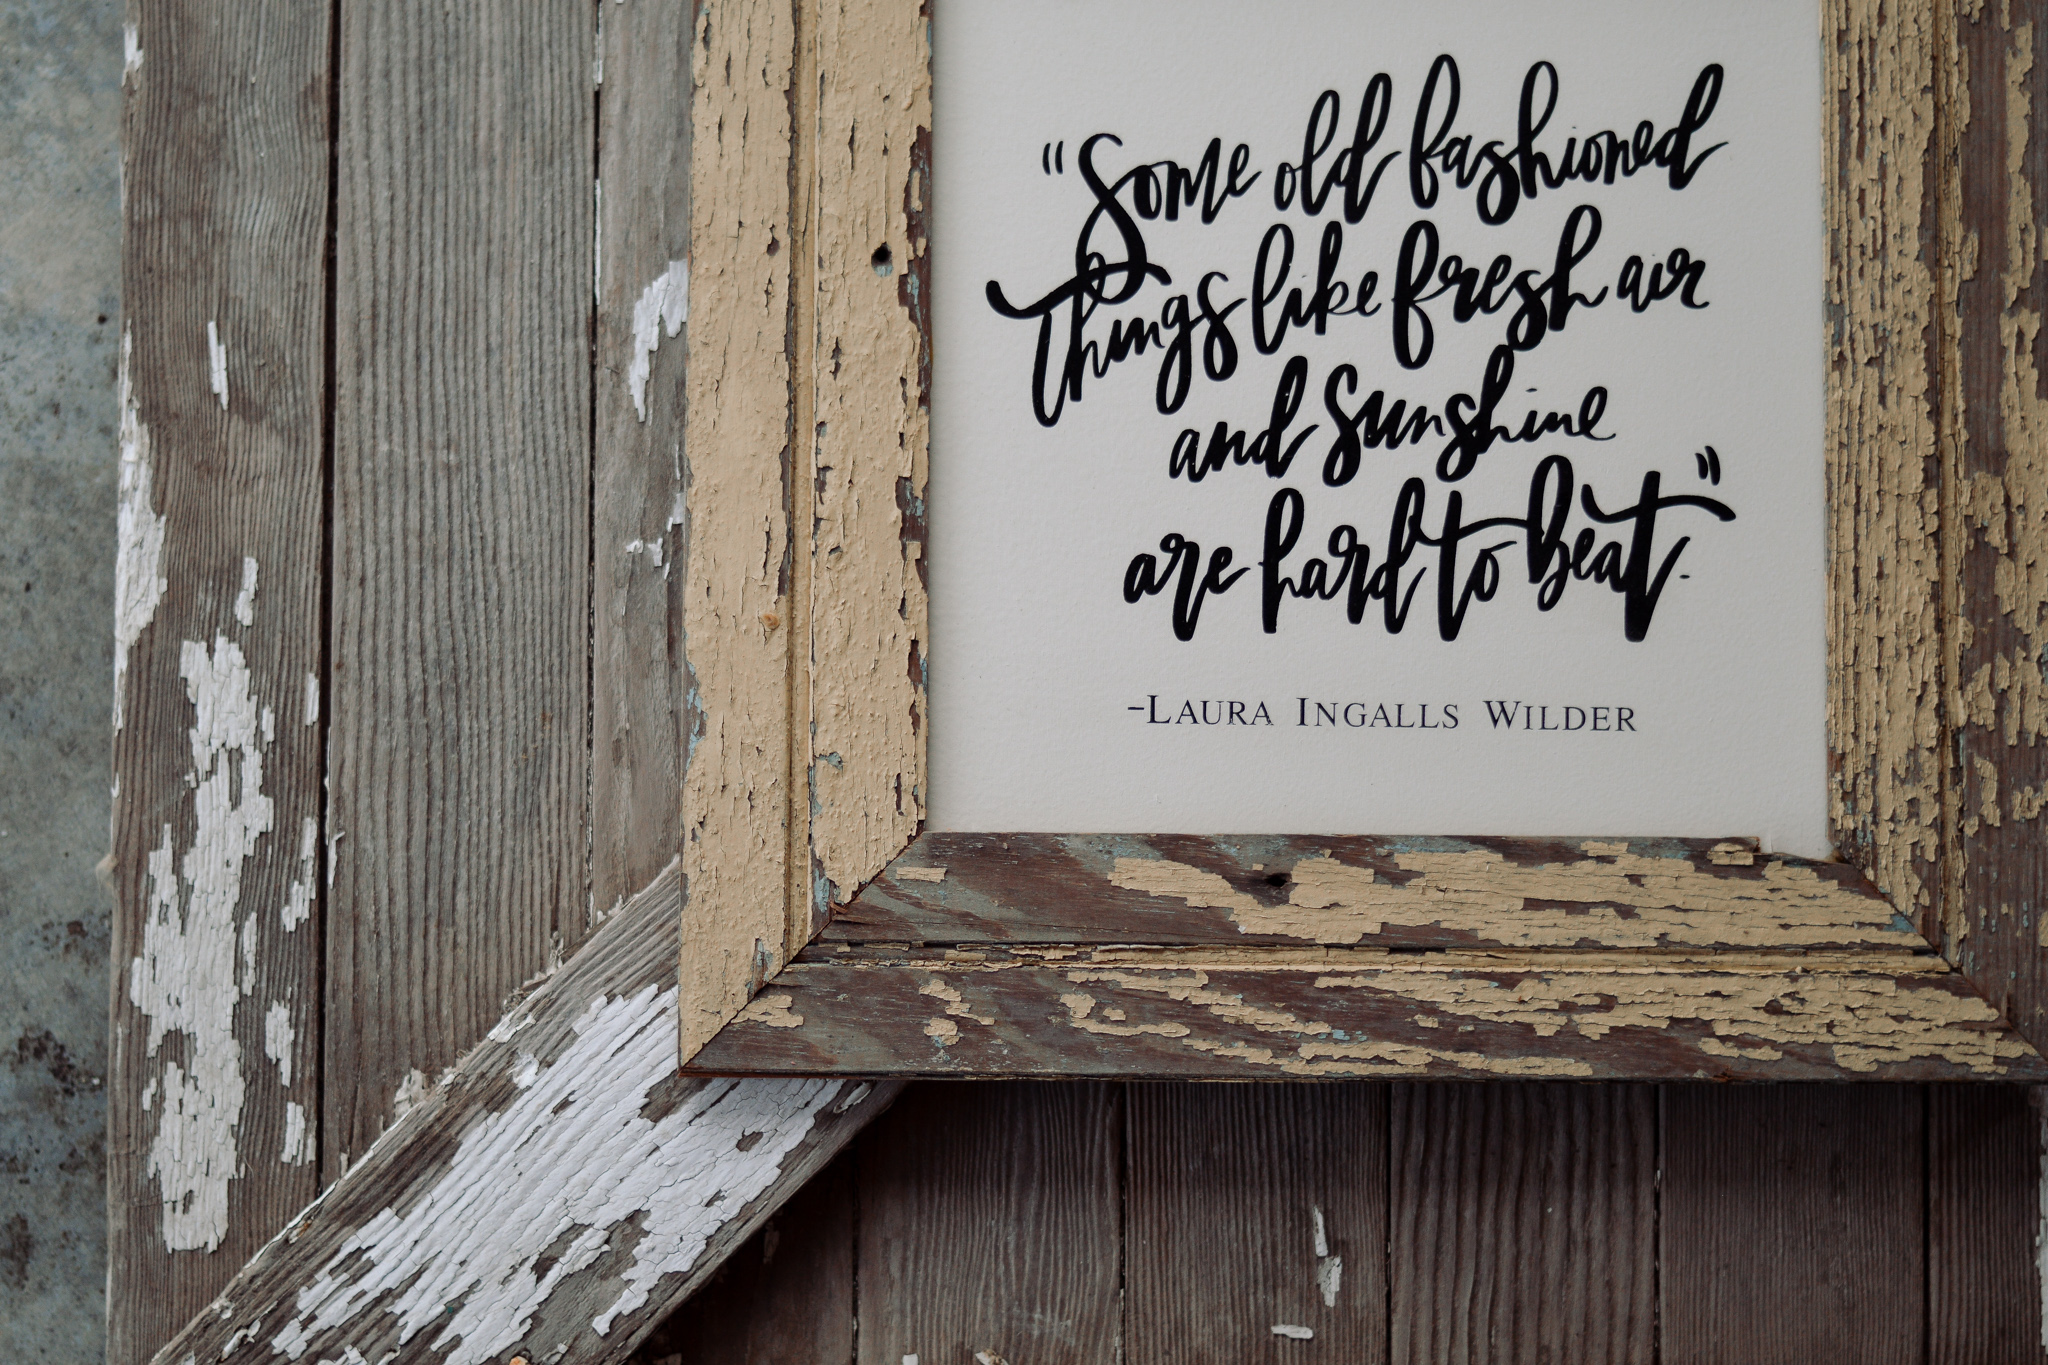 "Some old fashioned
Things like fresh air
and sunshine
are hard to beat."
-LAURA INGALLS WILDER